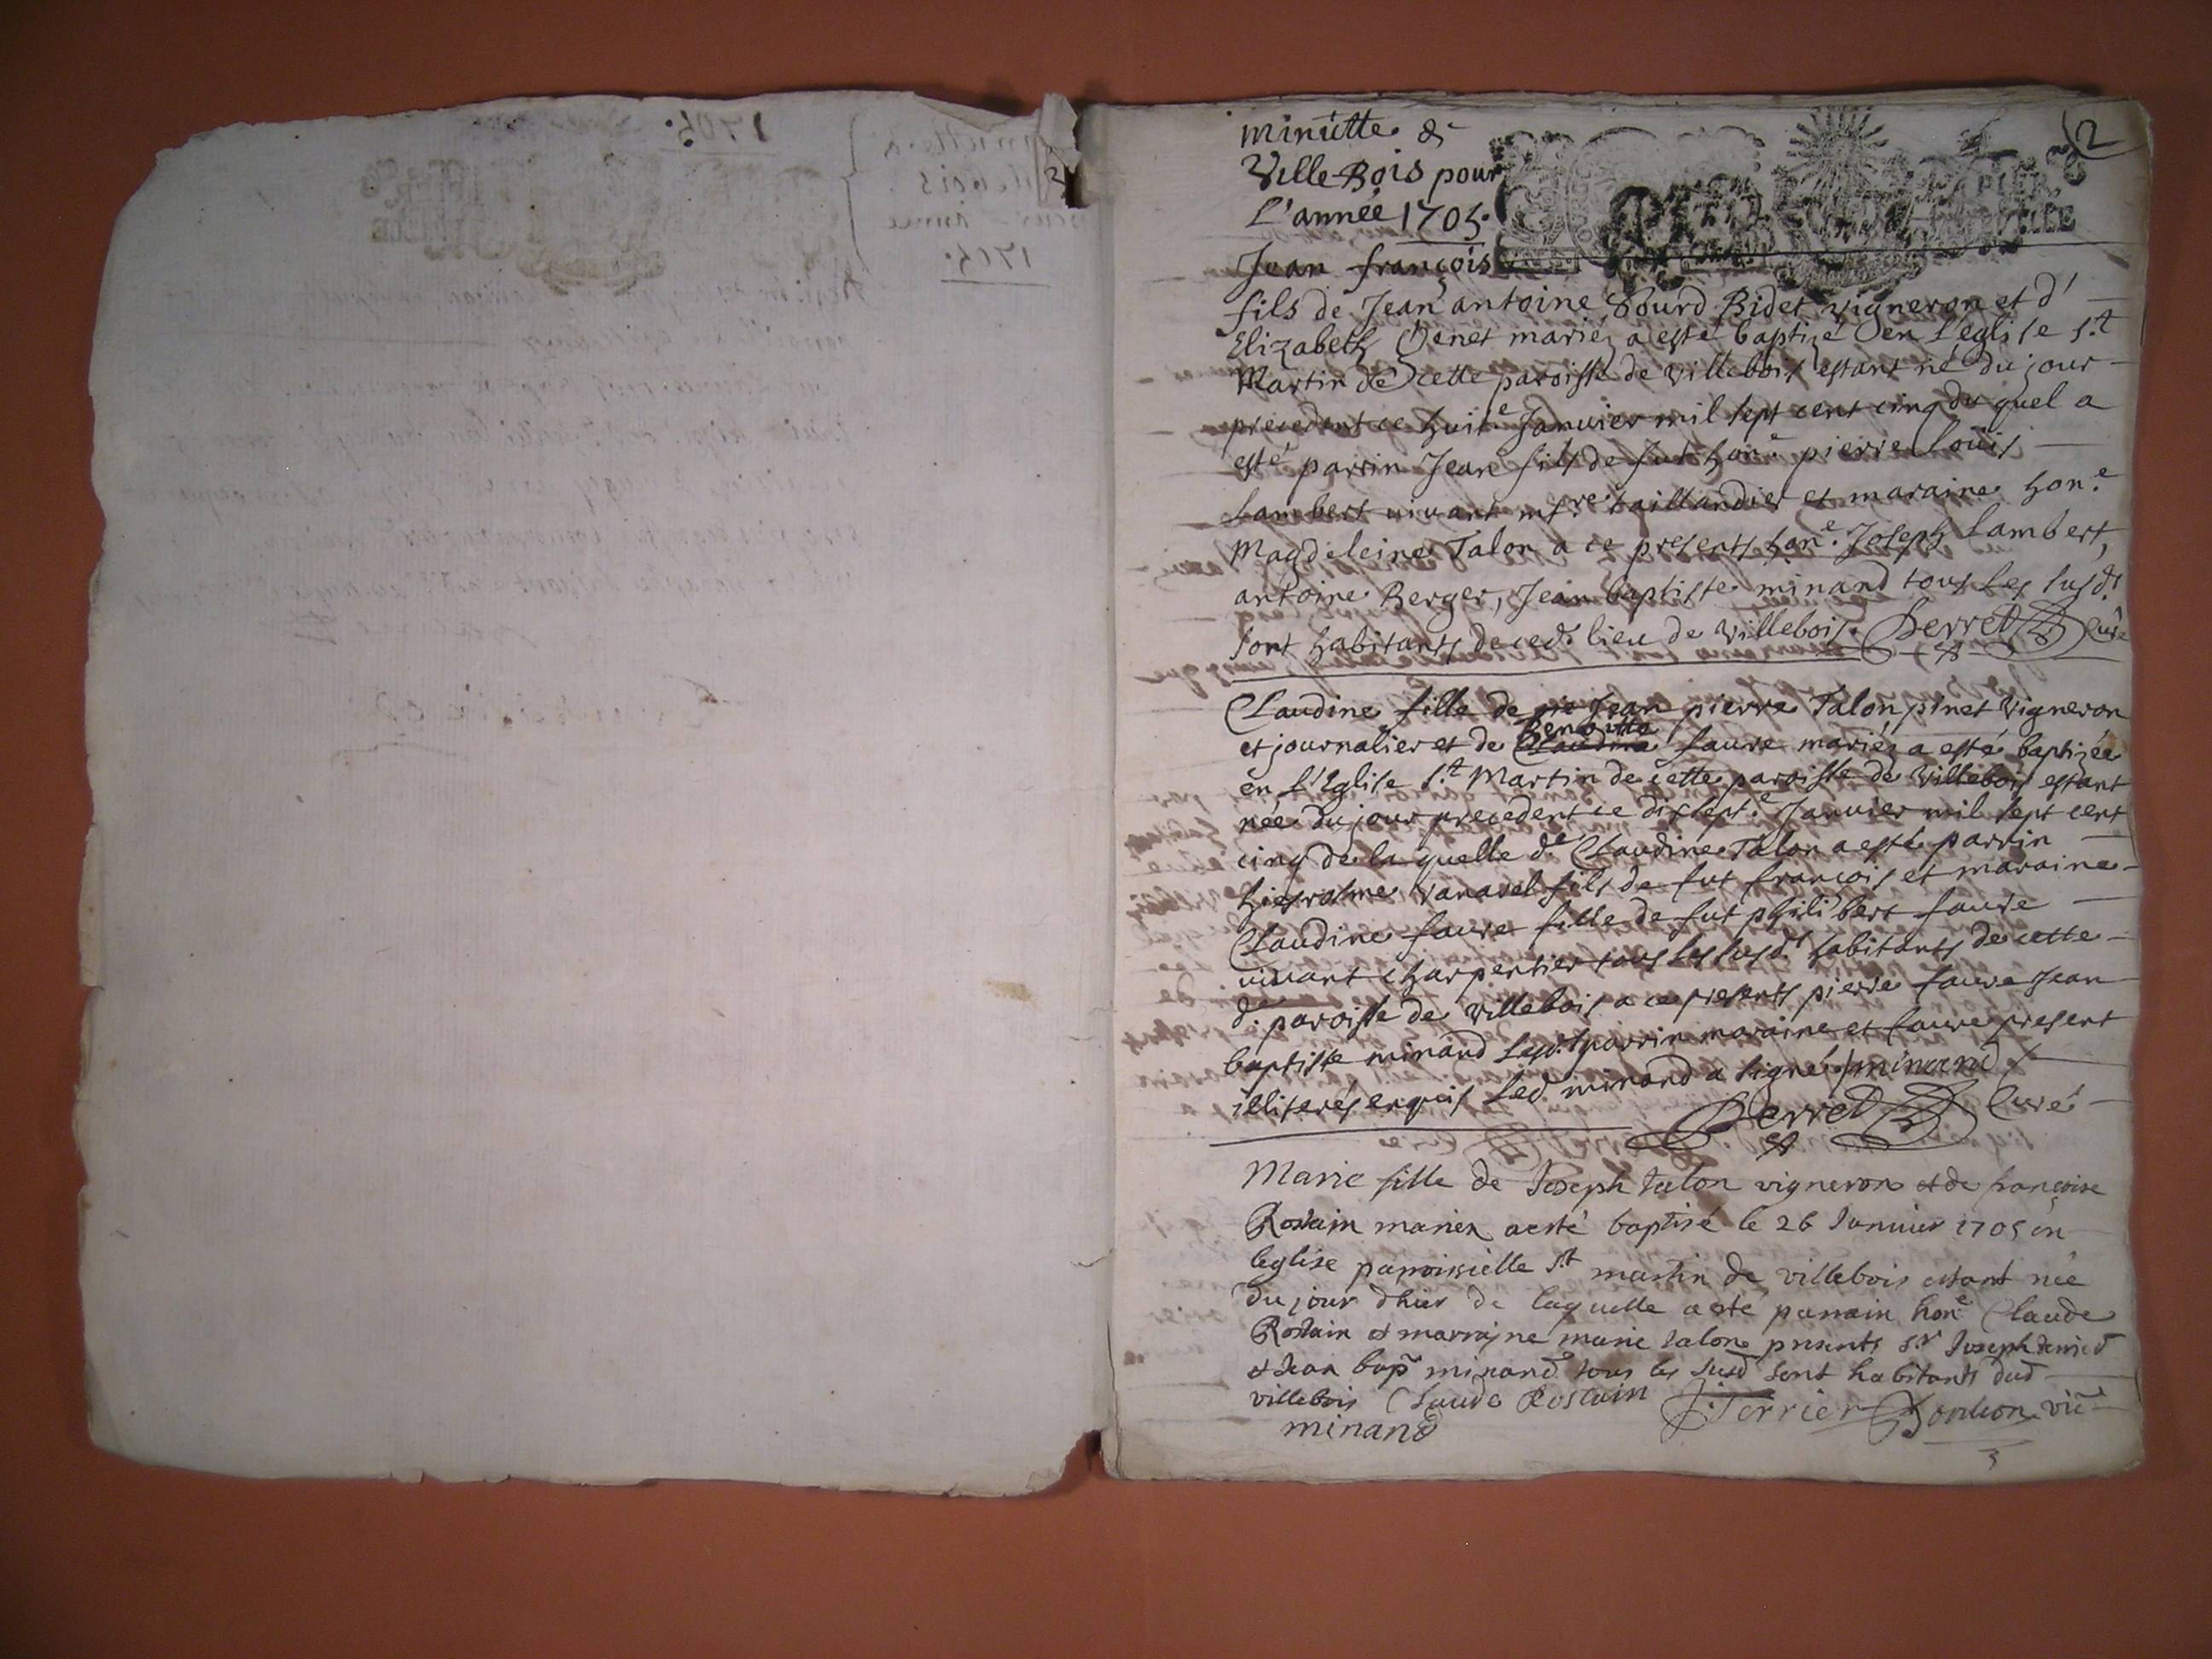 2
minutte de
Ville-Bois pour
L'année 1705.
Jean françois
fils de Jean antoine Bourd Bidet vigneron et d'
Elizabeth Genet mariez a esté baptizé en l'eglise s.t
Martin de cette paroisse de villebois estant né du jour
precedent ce huit.e Janvier mil sept cent cinq du quel a
esté parrin Jean fils de fut hon.e pierre Loüis
Lambert vivant m.re taillandier et maraine hon.e
Magdeleine Talon a ce presents hon.e Joseph Lambert,
antoine Berger, Jean baptiste minand tous les susd.ts
sont habitants de ced. lieu de villebois. Perret Curé
Claudine fille de Jean pierre Talon pinet vigneron
et journalier et de Benoitte faure mariéz a esté baptizée
en L'Eglise s.t Martin de cette paroisse de villebois estant
née du jour precedent ce dixsept.e Janvier mil sept cent
cinq de la quelle d.e Claudine Talon a esté parrin
hierosme vanavel fils de fut françois et maraine
Claudine faure fille de fut philibert faure
vivant charpentier tous les susd.ts habitants de cette
d. paroisse de villebois a ce presents pierre faure Jean
baptiste minand Lesd. parrin maraine et faure present
illiterés enquis Led. minand a signé minand
Perret Curé
Marie fille de Joseph talon vigneron et de françoise
Rostain mariez a esté baptisé le 26 Janvier 1705 en
leglise paroissielle st martin de villebois estant née
du jour dhier de laquelle a esté parrain hon.e Claude
Rostain et marrayne marie talon presents sr Joseph terrier
et Jean bap. minand tous les susd sont habitants dud
villebois Claude Rostain J. Terrier vic.
minand